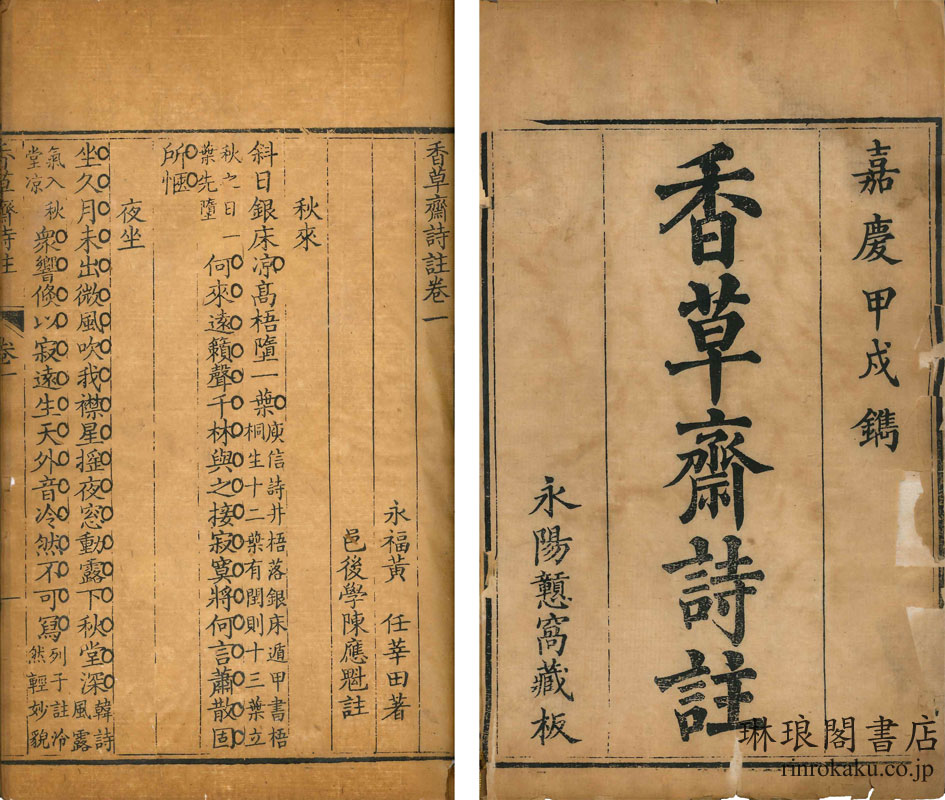 嘉慶甲戌鐫
香草齋詩註
永陽窩藏板
琳琅閣書店
rinrokaku.co.jp
香草齋詩註卷一
永福黃 任莘田著
邑後學陳應魁註
秋來
斜日銀床凉高梧墮一葉庾信詩井梧落銀床遁甲書梧桐生十二葉有閏則十三葉立
秋之日一葉先墮何來遠籟聲千林與之接寂寞將何言蕭散固
所愜
夜坐
坐久月未出微風吹我襟星搖夜窓動露下秋堂深韓詩風露
氣入秋堂凉衆響倏以寂遠生天外音冷然不可寫列子註冷然輕妙貌
香草齋詩註 卷一 一